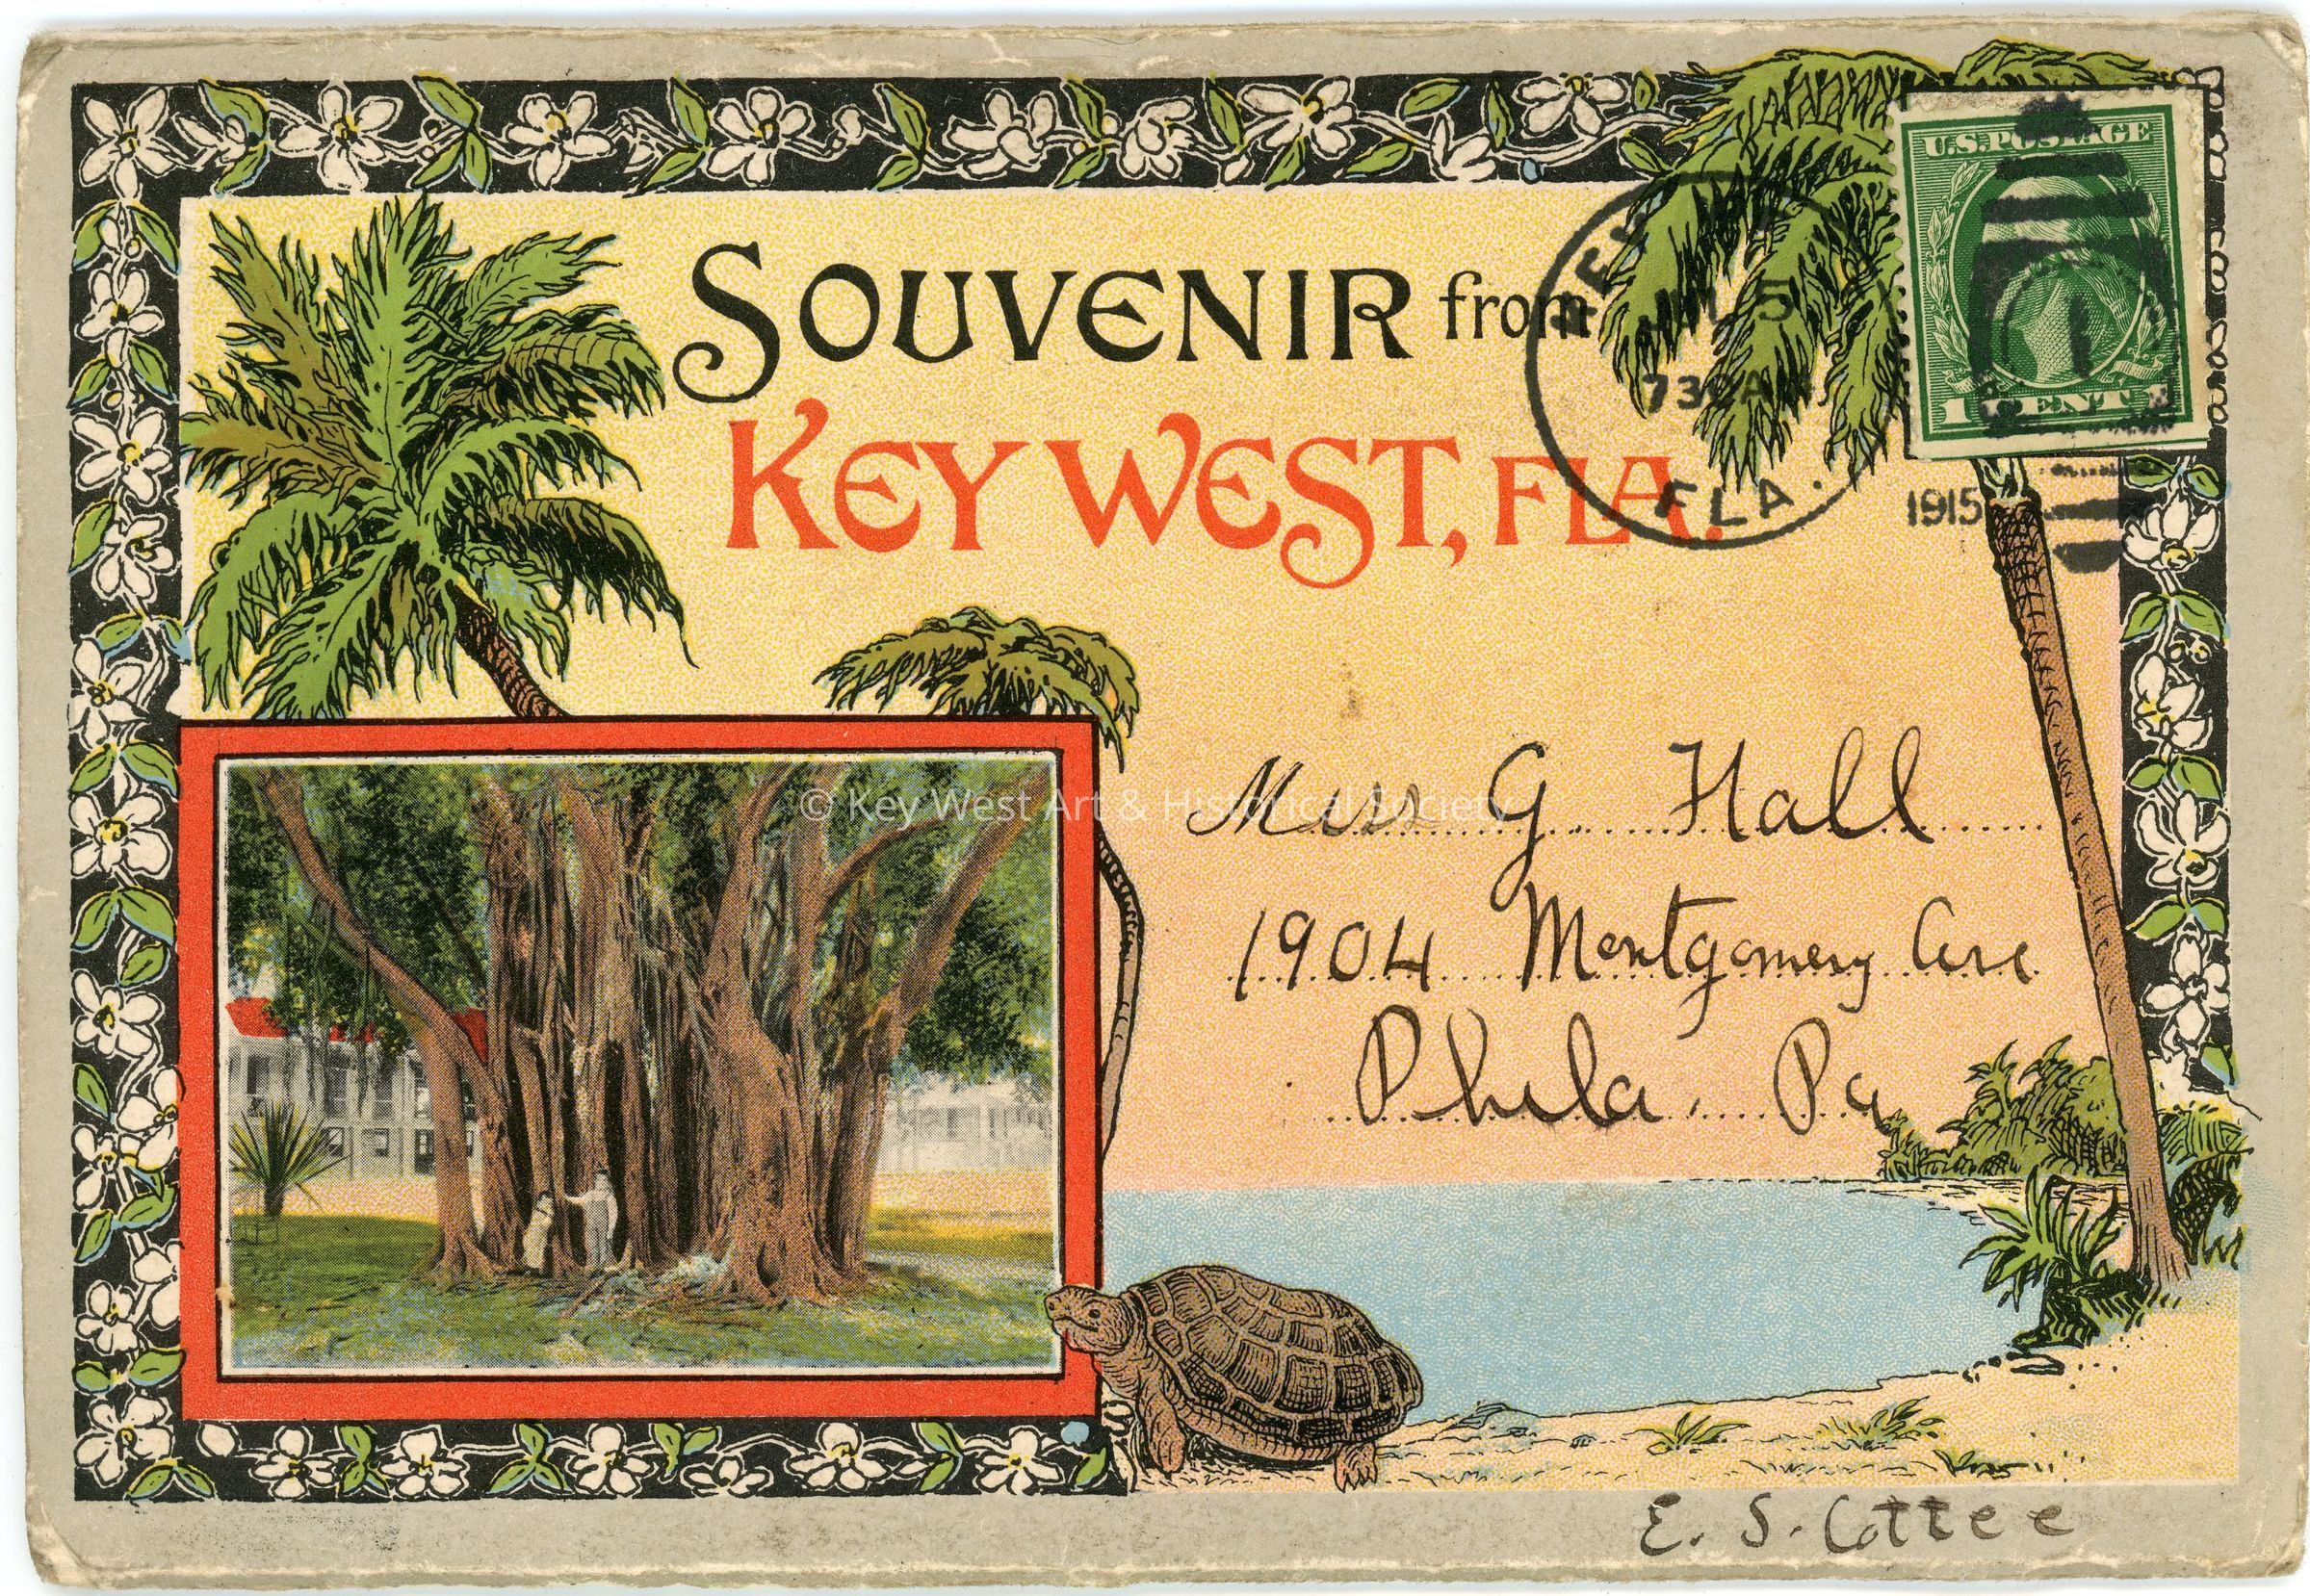 SOUVENIR from
KEY WEST, FLA.
U.S. POSTAGE
1 CENT 1
KEY
JUL 5
730 AM
FLA.
1915
© Key West Art & Historical Society
Miss G Hall
1904 Montgomery Ave
Phila. Pa
E. S. Cottee